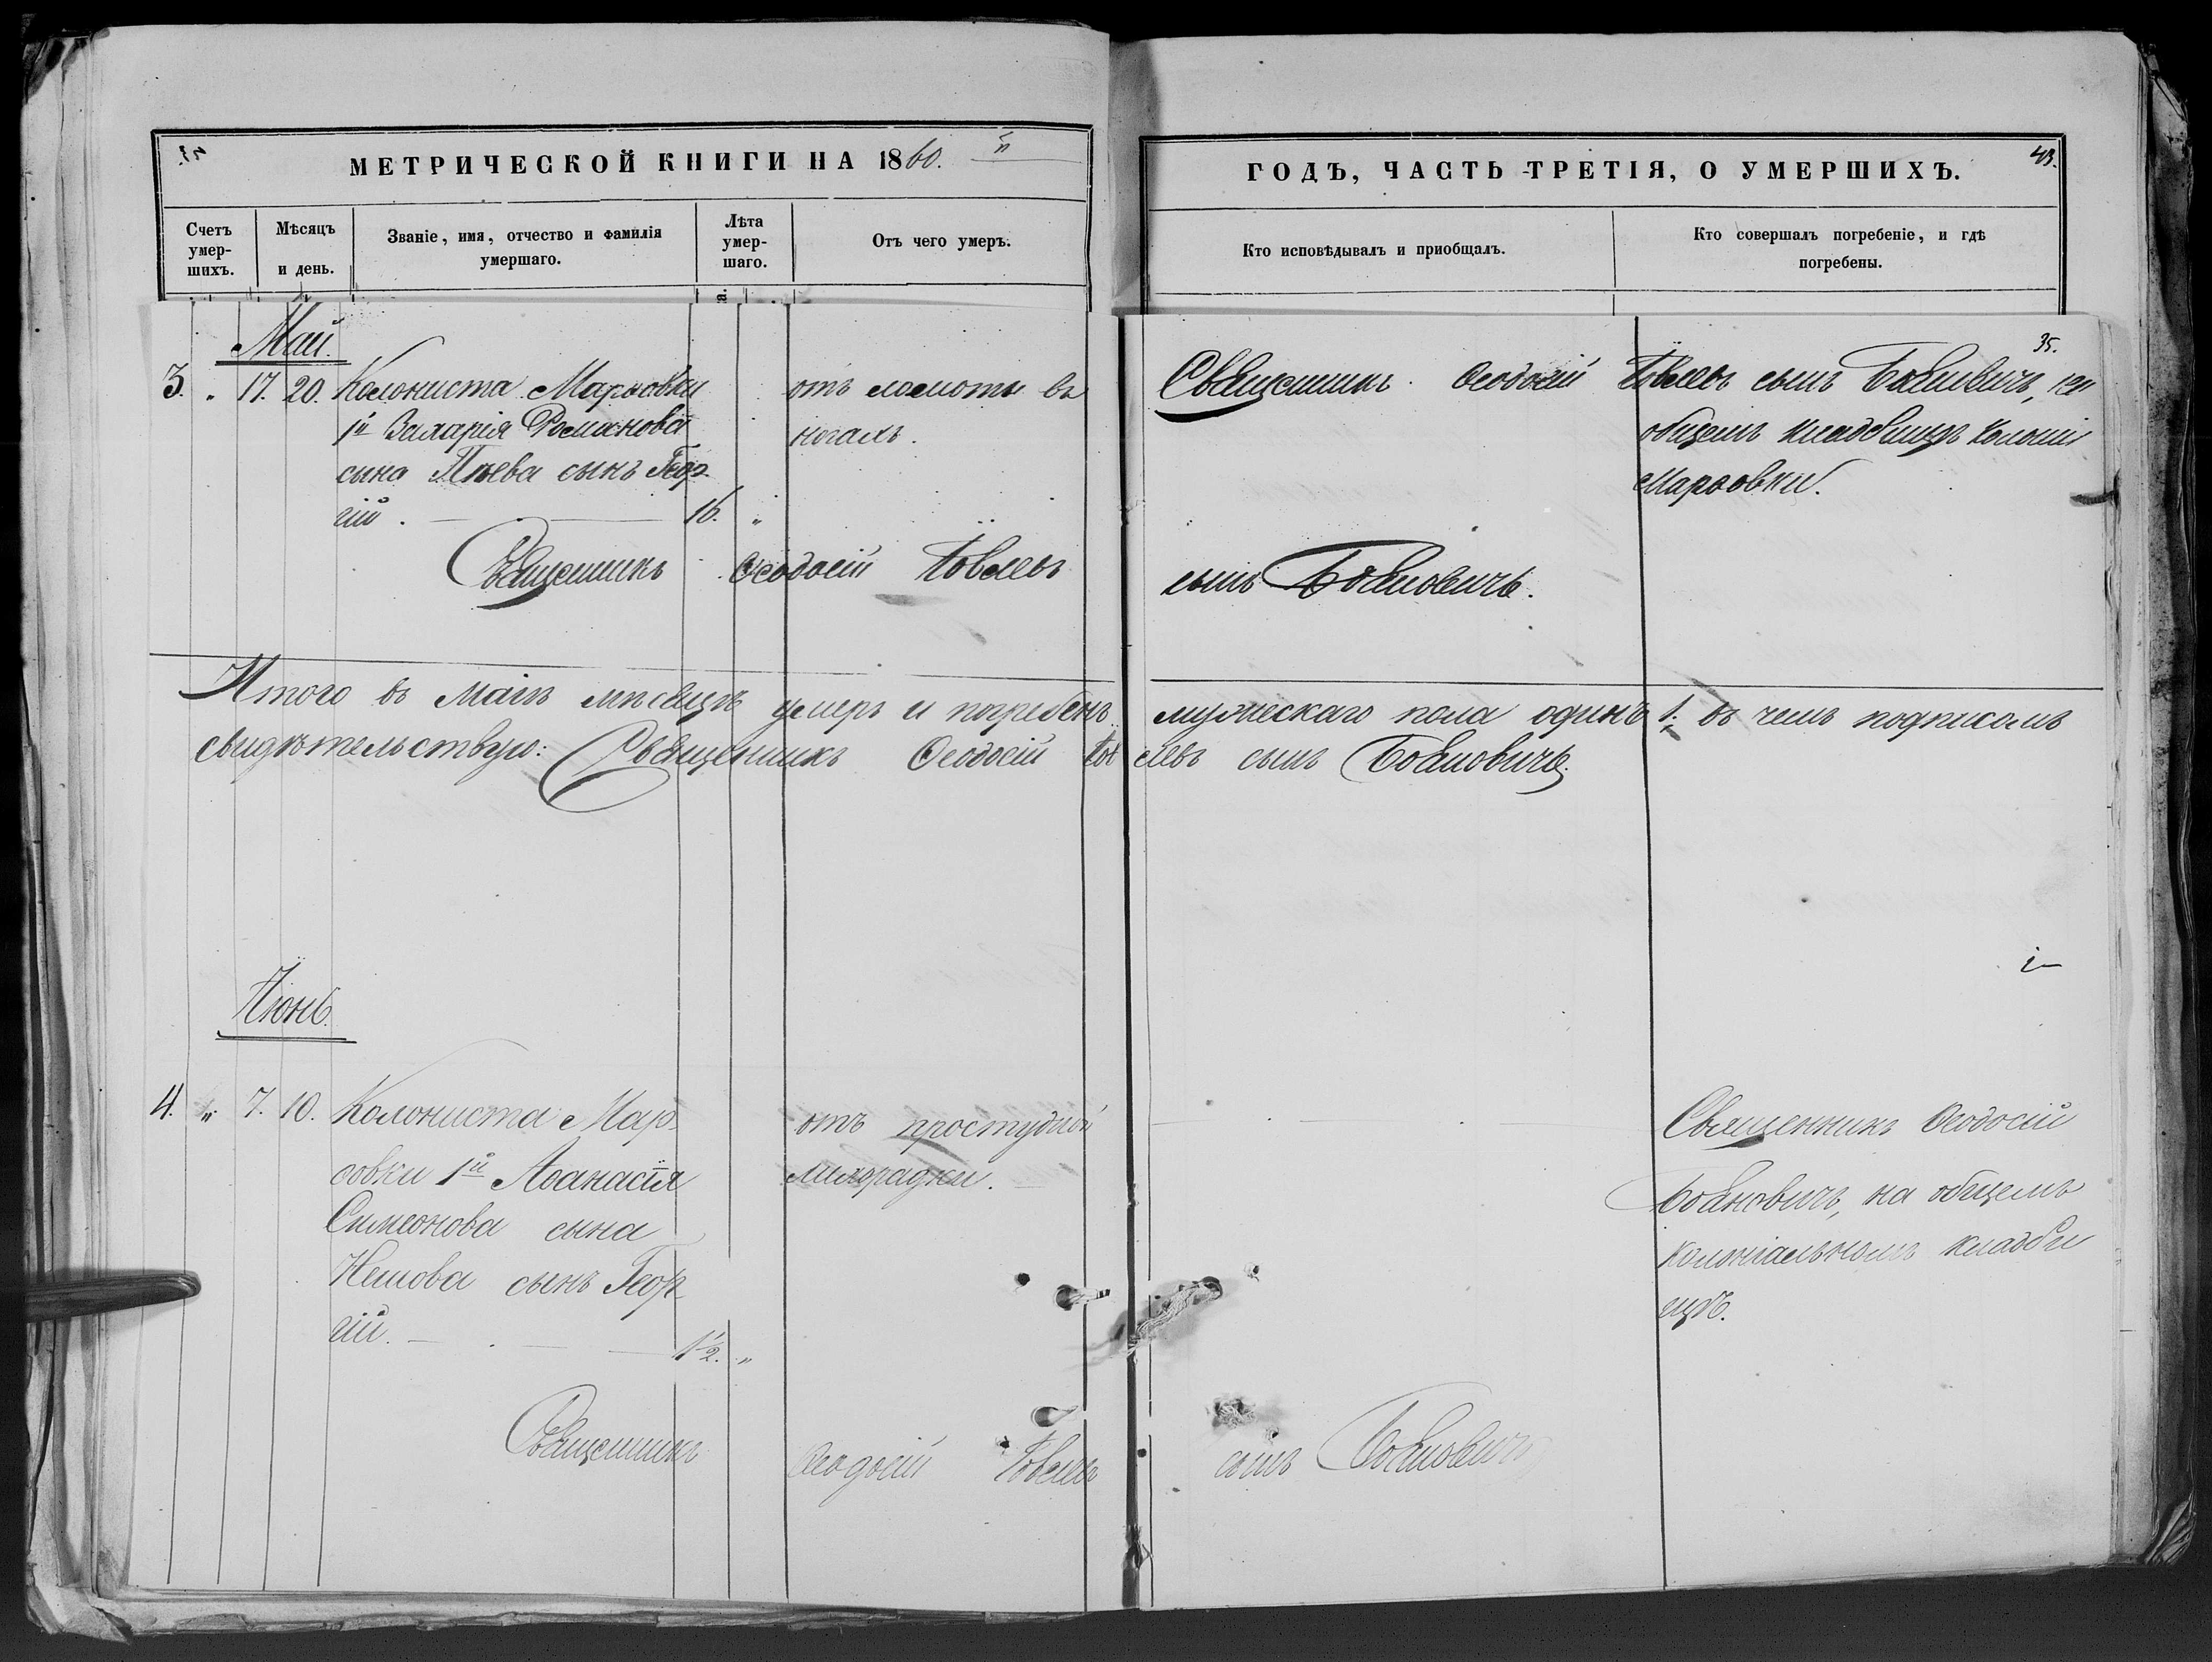 МЕТРИЧЕСКОЙ КНИГИ НА 1860.
ГОДЪ, ЧАСТЬ ТРЕТІЯ, О УМЕРШИХЪ.
43.
Счетъ умер-шихъ.
Мѣсяцъ и день.
Званіе, имя, отчество и фамилія умершаго.
Лѣта умер-шаго.
Отъ чего умеръ.
Кто исповѣдывалъ и приобщалъ.
Кто совершалъ погребеніе, и гдѣ погребены.
35.
Май.
3. " 17. 20. Колониста Марѳовки
1й Захарія Романова
сына сынъ Геор
гій. 16. "
отъ ломоты въ
ногахъ.
Священникъ Ѳеодосій Іовлевъ сынъ Бояновичъ, на
общемъ кладбищѣ колоніи
Марѳовки.
Священникъ Ѳеодосій Іовлевъ сынъ Бояновичъ.
Итого въ Маіѣ мѣсяцѣ умеръ и погребенъ мужескаго пола одинъ 1. въ чемъ подписомъ
свидѣтельствую: Священникъ Ѳеодосій Іовлевъ сынъ Бояновичъ.
Іюнь.
4. " 7. 10. Колониста Мар
ѳовки 1й Аѳанасія
Симеонова сына
Нешова сынъ Геор
гій. 1½. "
отъ простудной
лихорадки.
Священникъ Ѳеодосій
Бояновичъ, на общемъ
колоніальномъ кладби
щѣ.
Священникъ Ѳеодосій Іовлевъ сынъ Бояновичъ